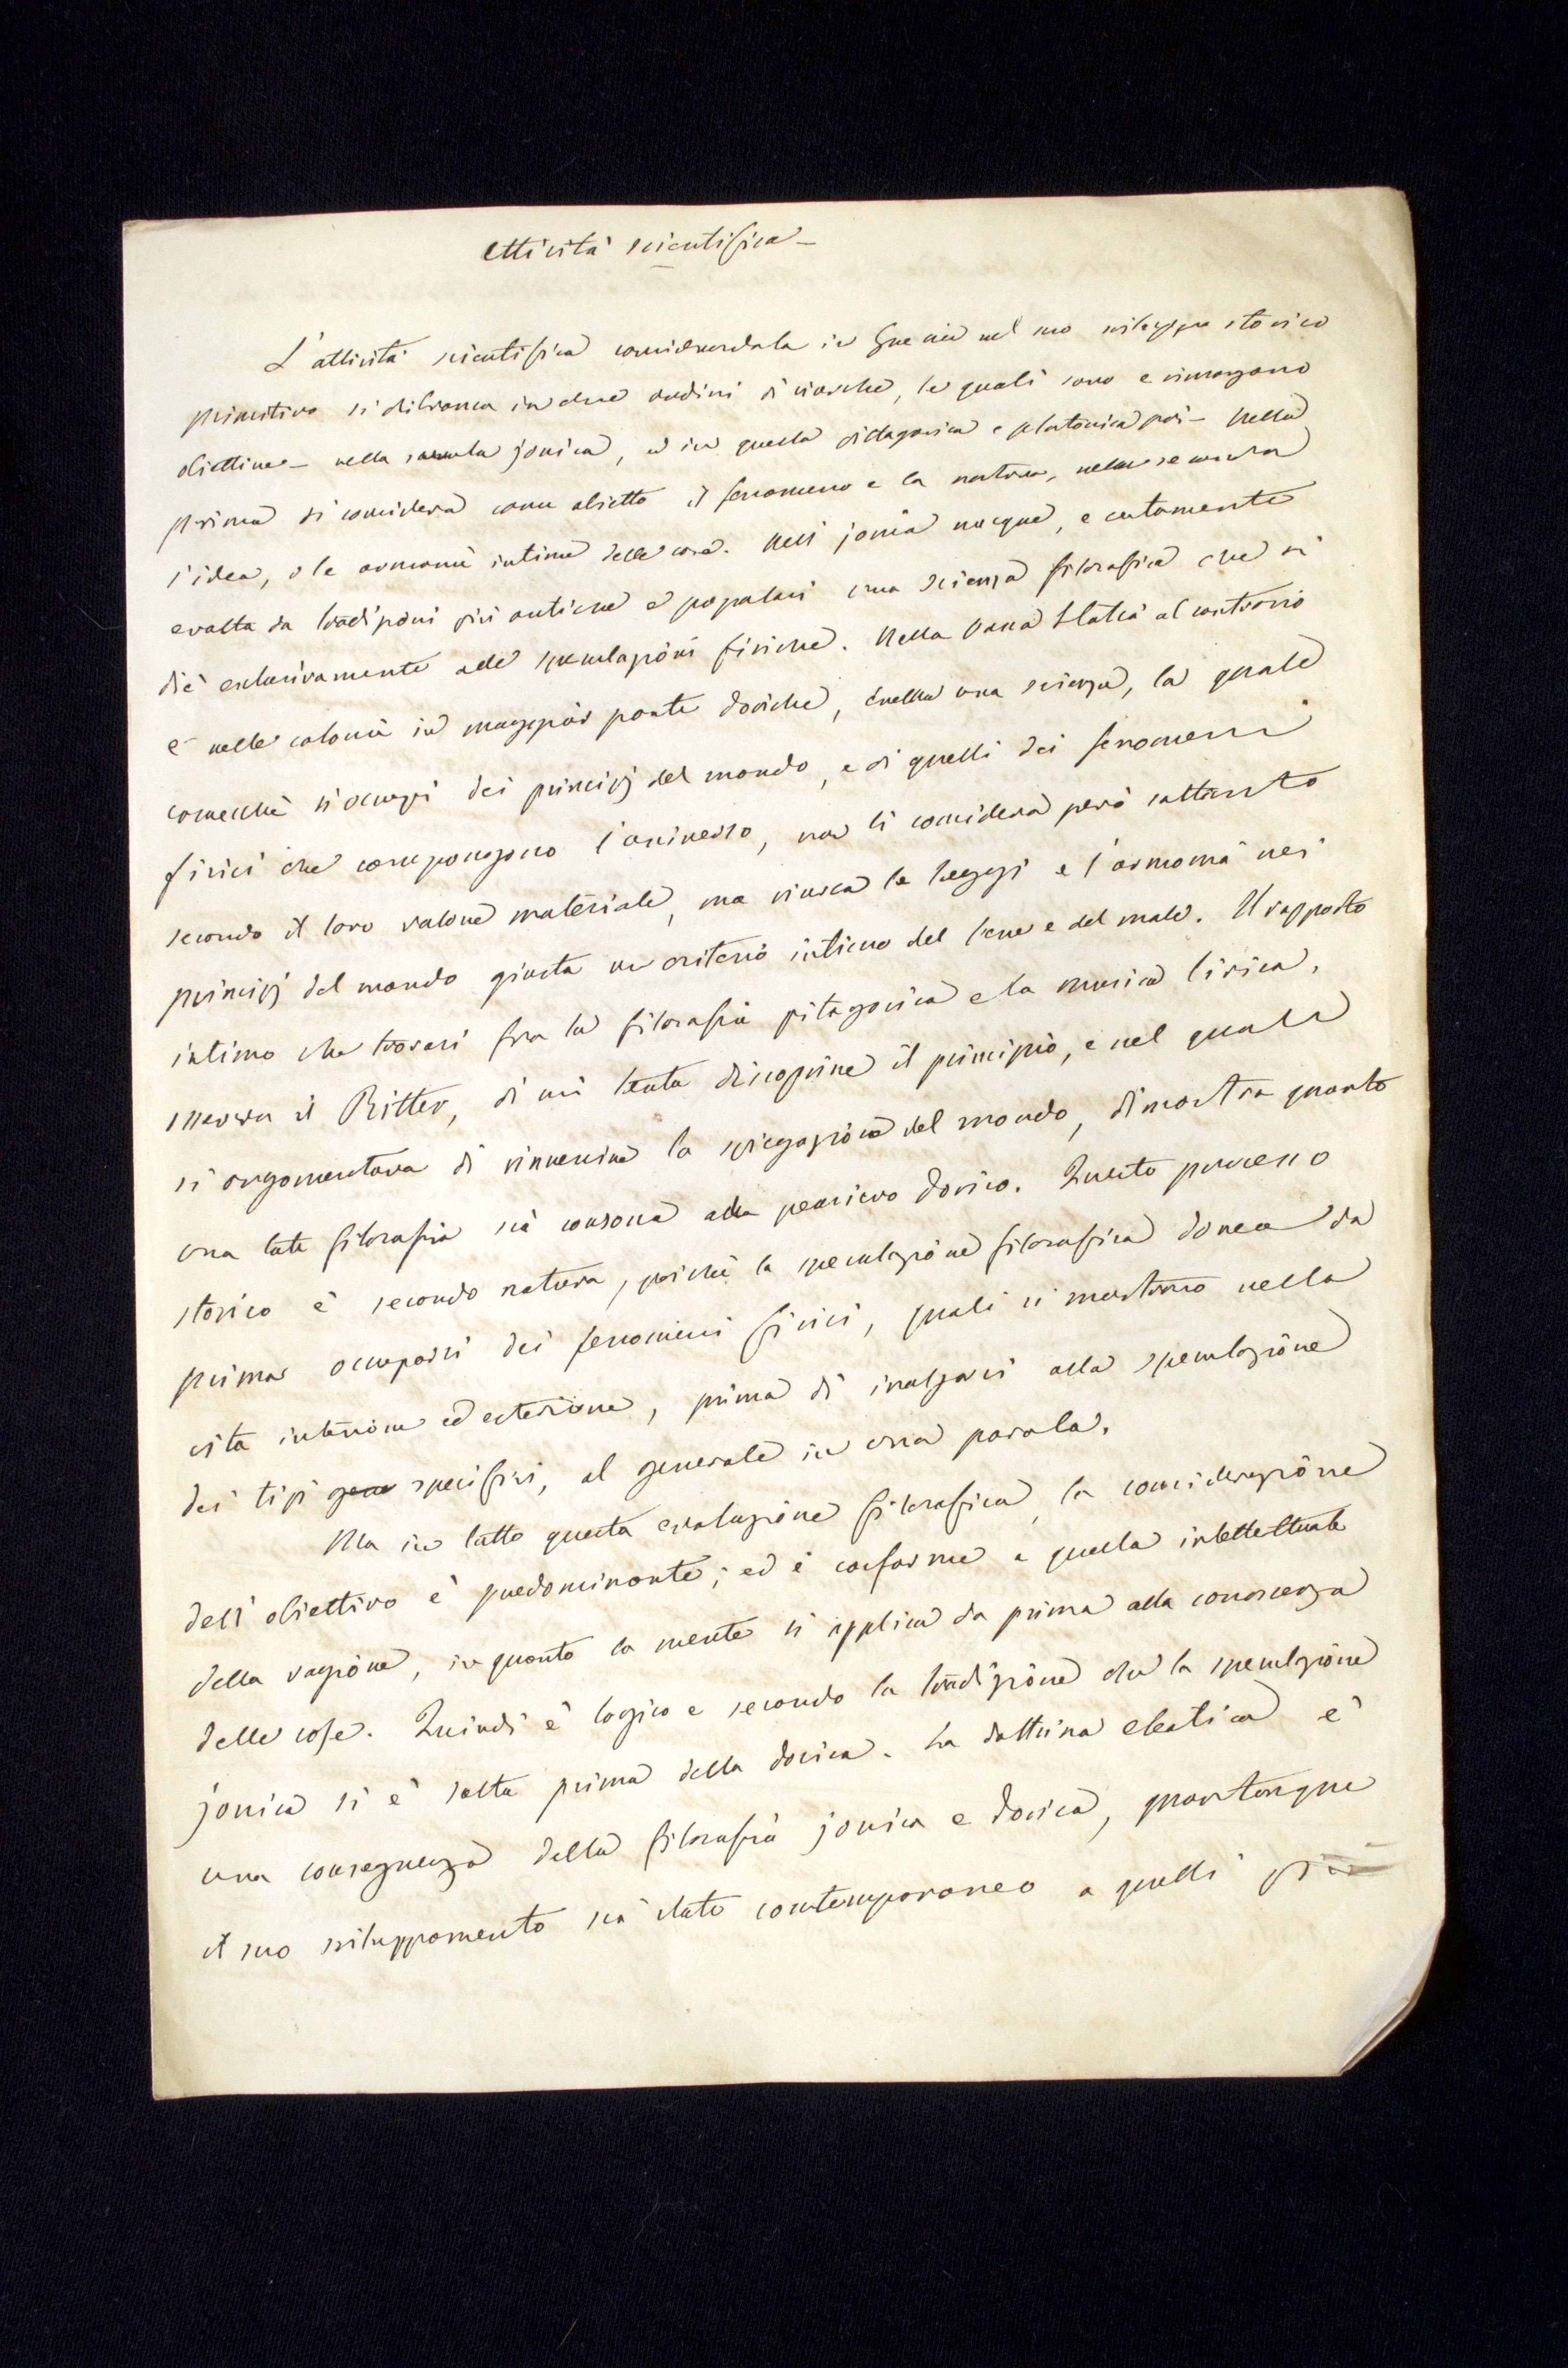 Attività scientifica —
L'attività scientifica considerata in Grecia nel suo sviluppo storico
primitivo si dibranca in due ordini di ricerche, le quali sono e rimangono
obiettive — nella scuola jonica, e in quella pittagorica e platonica poi — Nella
prima si considera come obietto il fenomeno e la natura, nella seconda
l'idea, o le armonie intime delle cose. Nell'jonia nacque, e certamente
evolta da tradizioni più antiche e popolari una scienza filosofica che si
diè esclusivamente alle speculazioni fisiche. Nella Italia al contrario
e nelle colonie in maggior parte doriche, una scienza, la quale
comecchè si occupi dei principj del mondo, e di quelli dei fenomeni
fisici che compongono l'universo, non li considera però soltanto
secondo il loro valore materiale, ma ricerca le leggi e l'armonia nei
principj del mondo giusta un criterio intimo del bene e del male. Il rapporto
intimo che trovasi fra la filosofia pitagorica e la musica lirica,
osserva il Ritter, di cui tenta discoprire il principio, e nel quale
si argomentava di rinvenire la spiegazione del mondo, dimostra quanto
una tale filosofia sia consona alla pensiero dorico. Questo processo
storico è secondo natura, poichè la speculazione filosofica dovea da
prima occuparsi dei fenomeni fisici, quali si mostrano nella
vita interiore ed esteriore, prima di inalzarsi alla speculazione
dei tipi gene specifici, al generale in una parola.
Ma in tutta questa evoluzione filosofica, la considerazione
dell'obiettivo è predominante; ed è conforme a quella intellettuale
della ragione, in quanto la mente si applica da prima alla conoscenza
delle cose. Quindi è logico e secondo la tradizione che la speculazione
jonica si è svolta prima della dorica. La dottrina eleatica è
una conseguenza della filosofia jonica e dorica, quantunque
il suo sviluppamento sia stato contemporaneo a quelli più